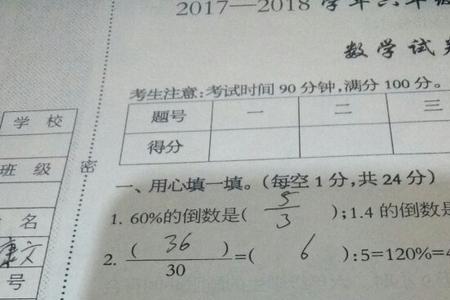 2017—2018 学年六年级
数学试
考生注意:考试时间 90 分钟,满分 100 分。
题号 一 二 三
得分
学校
班级
密
名
号
一、用心填一填。(每空 1 分,共 24 分)
1. 60%的倒数是( 5/3 );1.4 的倒数是
2. ( 36 )/30 =( 6 ):5=120%=